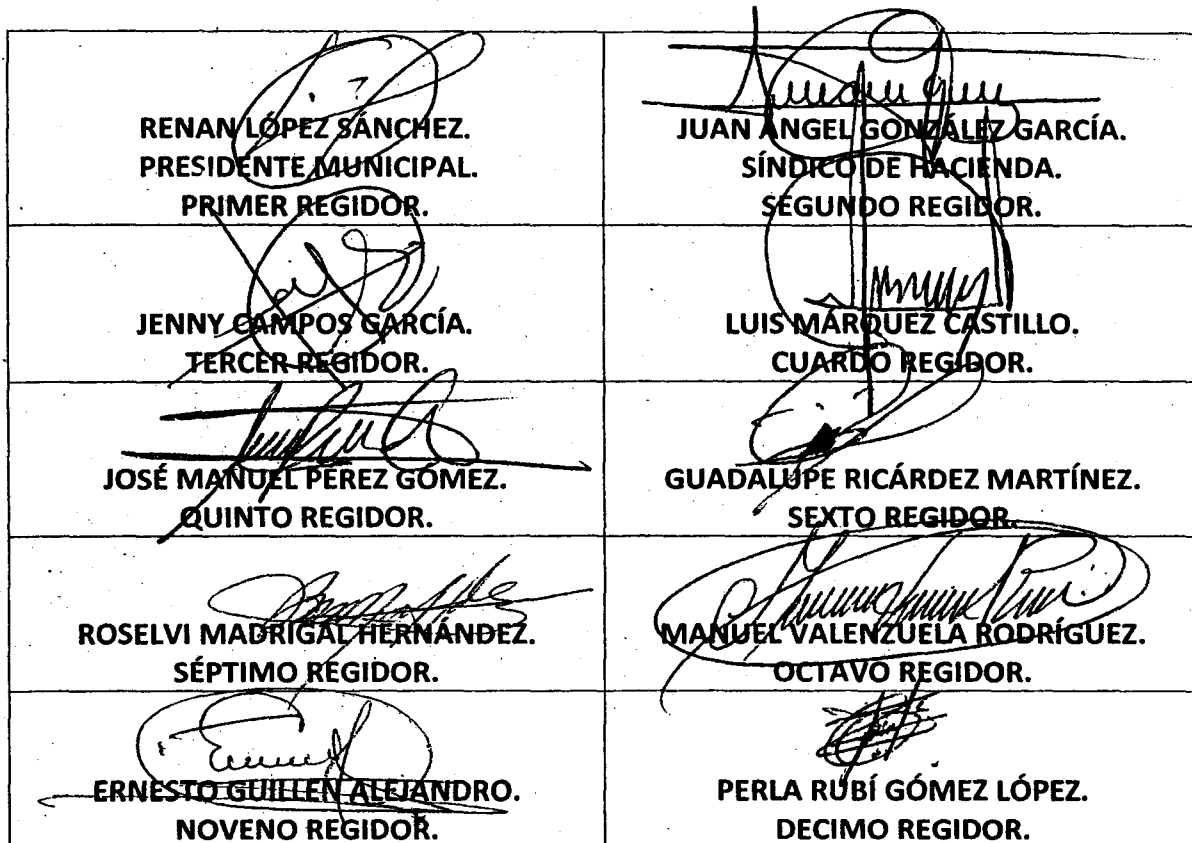 RENAN LÓPEZ SÁNCHEZ.
PRESIDENTE MUNICIPAL.
PRIMER REGIDOR.
JUAN ANGEL GONZÁLEZ GARCÍA.
SÍNDICO DE HACIENDA.
SEGUNDO REGIDOR.
JENNY CAMPOS GARCÍA.
TERCER REGIDOR.
LUIS MÁRQUEZ CASTILLO.
CUARDO REGIDOR.
JOSÉ MANUEL PÉREZ GÓMEZ.
QUINTO REGIDOR.
GUADALUPE RICÁRDEZ MARTÍNEZ.
SEXTO REGIDOR.
ROSELVI MADRIGAL HERNÁNDEZ.
SÉPTIMO REGIDOR.
MANUEL VALENZUELA RODRÍGUEZ.
OCTAVO REGIDOR.
ERNESTO GUILLEN ALEJANDRO.
NOVENO REGIDOR.
PERLA RUBÍ GÓMEZ LÓPEZ.
DECIMO REGIDOR.